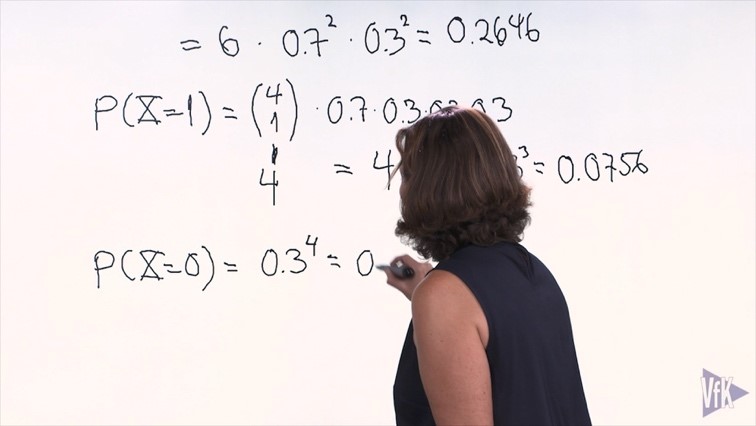 = 6 · 0.7² · 0.3² = 0.2646
P(X=1) = (4 1) · 0.7 · 0.3 · 0.3 · 0.3
4 = 4 ³ = 0.0756
P(X=0) = 0.3⁴ = 0
VfK